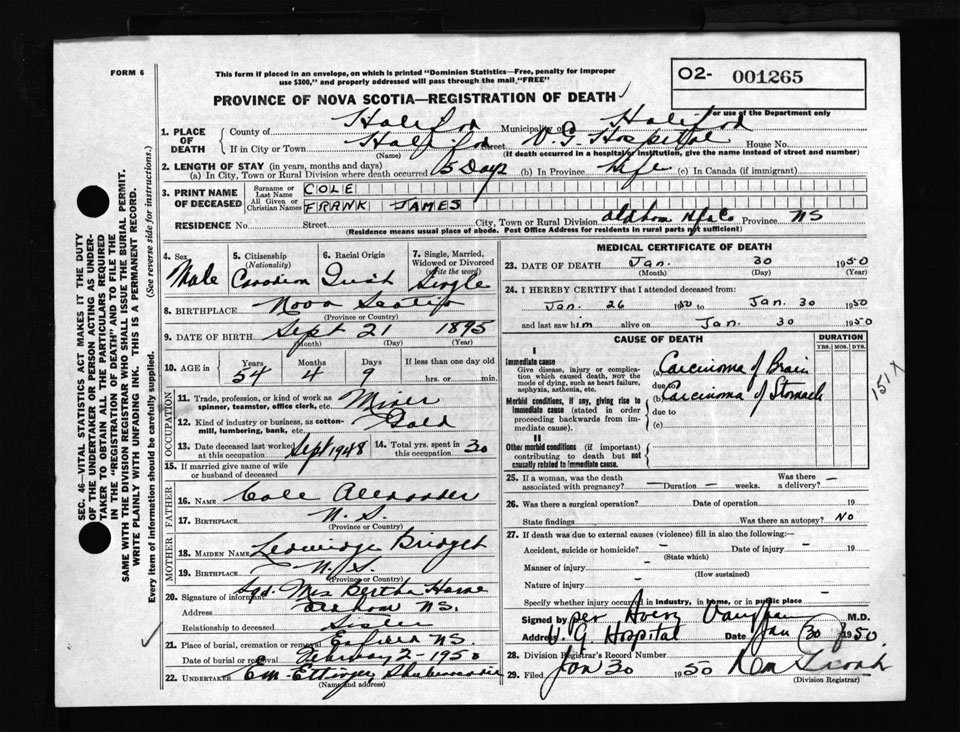 FORM 6
This form if placed in an envelope, on which is printed "Dominion Statistics—Free, penalty for improper
use $300," and properly addressed will pass through the mail, "FREE"
O2- 001265
For use of the Department only
PROVINCE OF NOVA SCOTIA—REGISTRATION OF DEATH
1. PLACE OF DEATH
County of Halifax Municipality of Halifax
If in City or Town Halifax Street V.G. Hospital House No.
(Name) (If death occurred in a hospital or institution, give the name instead of street and number)
2. LENGTH OF STAY (in years, months and days)
(a) In City, Town or Rural Division where death occurred 5 Days (b) In Province Life (c) In Canada (if immigrant)
3. PRINT NAME OF DECEASED
Surname or Last Name COLE
All Given or Christian Names FRANK JAMES
RESIDENCE No. Street City, Town or Rural Division Oldham Hfx Co Province NS
(Residence means usual place of abode. Post Office Address for residents in rural parts not sufficient)
4. Sex Male
5. Citizenship (Nationality) Canadian
6. Racial Origin Irish
7. Single, Married, Widowed or Divorced (write the word) Single
8. BIRTHPLACE Nova Scotia
(Province or Country)
9. DATE OF BIRTH Sept 21 1895
(Month) (Day) (Year)
10. AGE in Years 54 Months 4 Days 9 If less than one day old hrs. or min.
OCCUPATION
11. Trade, profession, or kind of work as spinner, teamster, office clerk, etc. Miner
12. Kind of industry or business, as cotton-mill, lumbering, bank, etc. Gold
13. Date deceased last worked at this occupation Sept 1948
14. Total yrs. spent in this occupation 30
15. If married give name of wife or husband of deceased
FATHER
16. NAME Cole Alexander
17. BIRTHPLACE N.S.
(Province or Country)
MOTHER
18. MAIDEN NAME Ledwidge Bridget
19. BIRTHPLACE N.S.
(Province or Country)
20. Signature of informant Sgd. Mrs Bertha
Address Oldham NS.
Relationship to deceased Sister
21. Place of burial, cremation or removal Enfield NS.
Date of burial or removal February 2-1950
22. UNDERTAKER Em Ettinger Shubenacadie
(Name and address)
MEDICAL CERTIFICATE OF DEATH
23. DATE OF DEATH Jan. 30 1950
(Month) (Day) (Year)
24. I HEREBY CERTIFY that I attended deceased from:
Jan. 26 1950 to Jan. 30 1950
and last saw him alive on Jan. 30 1950
CAUSE OF DEATH
DURATION
YRS. MOS. DYS.
I
Immediate cause
Give disease, injury or complication which caused death, NOT the mode of dying, such as heart failure, asphyxia, asthenia, etc.
(a) Carcinoma of Brain
due to
Morbid conditions, if any, giving rise to immediate cause (stated in order proceeding backwards from immediate cause).
(b) Carcinoma of Stomach
due to
(c)
II
Other morbid conditions (if important) contributing to death but not causally related to immediate cause.
151X
25. If a woman, was the death associated with pregnancy? — Duration — weeks. Was there a delivery? —
26. Was there a surgical operation? Date of operation 19
State findings Was there an autopsy? No
27. If death was due to external causes (violence) fill in also the following:—
Accident, suicide or homicide? – Date of injury – 19
(State which)
Manner of injury –
(How sustained)
Nature of injury –
Specify whether injury occurred in industry, in home, or in public place –
Signed by per M.D.
Address V.G Hospital Date Jan 30 1950
28. Division Registrar's Record Number
29. Filed Jan 30 1950
(Division Registrar)
SEC. 46—VITAL STATISTICS ACT MAKES IT THE DUTY
OF THE UNDERTAKER OR PERSON ACTING AS UNDER-
TAKER TO OBTAIN ALL THE PARTICULARS REQUIRED
IN THE "REGISTRATION OF DEATH" AND TO FILE THE
SAME WITH THE DIVISION REGISTRAR WHO SHALL ISSUE THE BURIAL PERMIT.
WRITE PLAINLY WITH UNFADING INK. THIS IS A PERMANENT RECORD.
Every item of information should be carefully supplied. (See reverse side for instructions.)